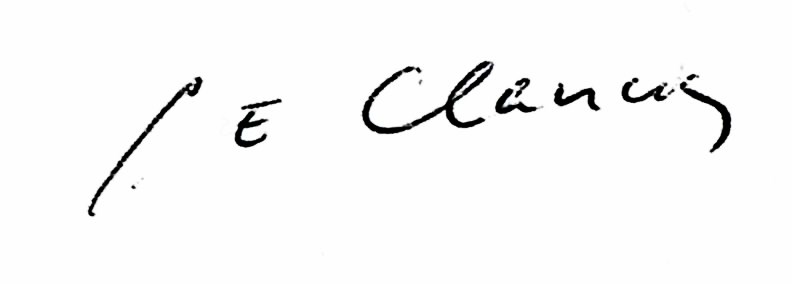 E Clancy